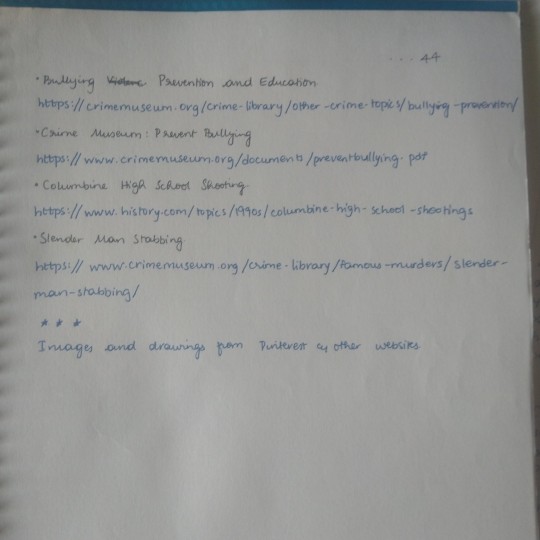 ... 44
• Bullying Prevention and Education
https://crimemuseum.org/crime-library/other-crime-topics/bullying-prevention/
• Crime Museum: Prevent Bullying
https://www.crimemuseum.org/documents/preventbullying.pdf
• Columbine High School Shooting
https://www.history.com/topics/1990s/columbine-high-school-shootings
• Slender Man Stabbing
https://www.crimemuseum.org/crime-library/famous-murders/slender-
man-stabbing/
* * *
Images and drawings from Pinterest other websites